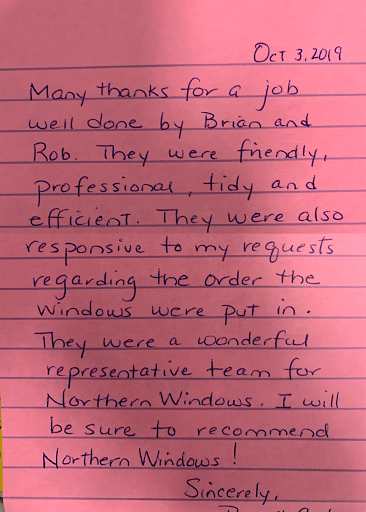 Oct 3, 2019
Many thanks for a job
well done by Brian and
Rob. They were friendly,
professional, tidy and
efficient. They were also
responsive to my requests
regarding the order the
windows were put in.
They were a wonderful
representative team for
Northern Windows. I will
be sure to recommend
Northern Windows!
Sincerely,